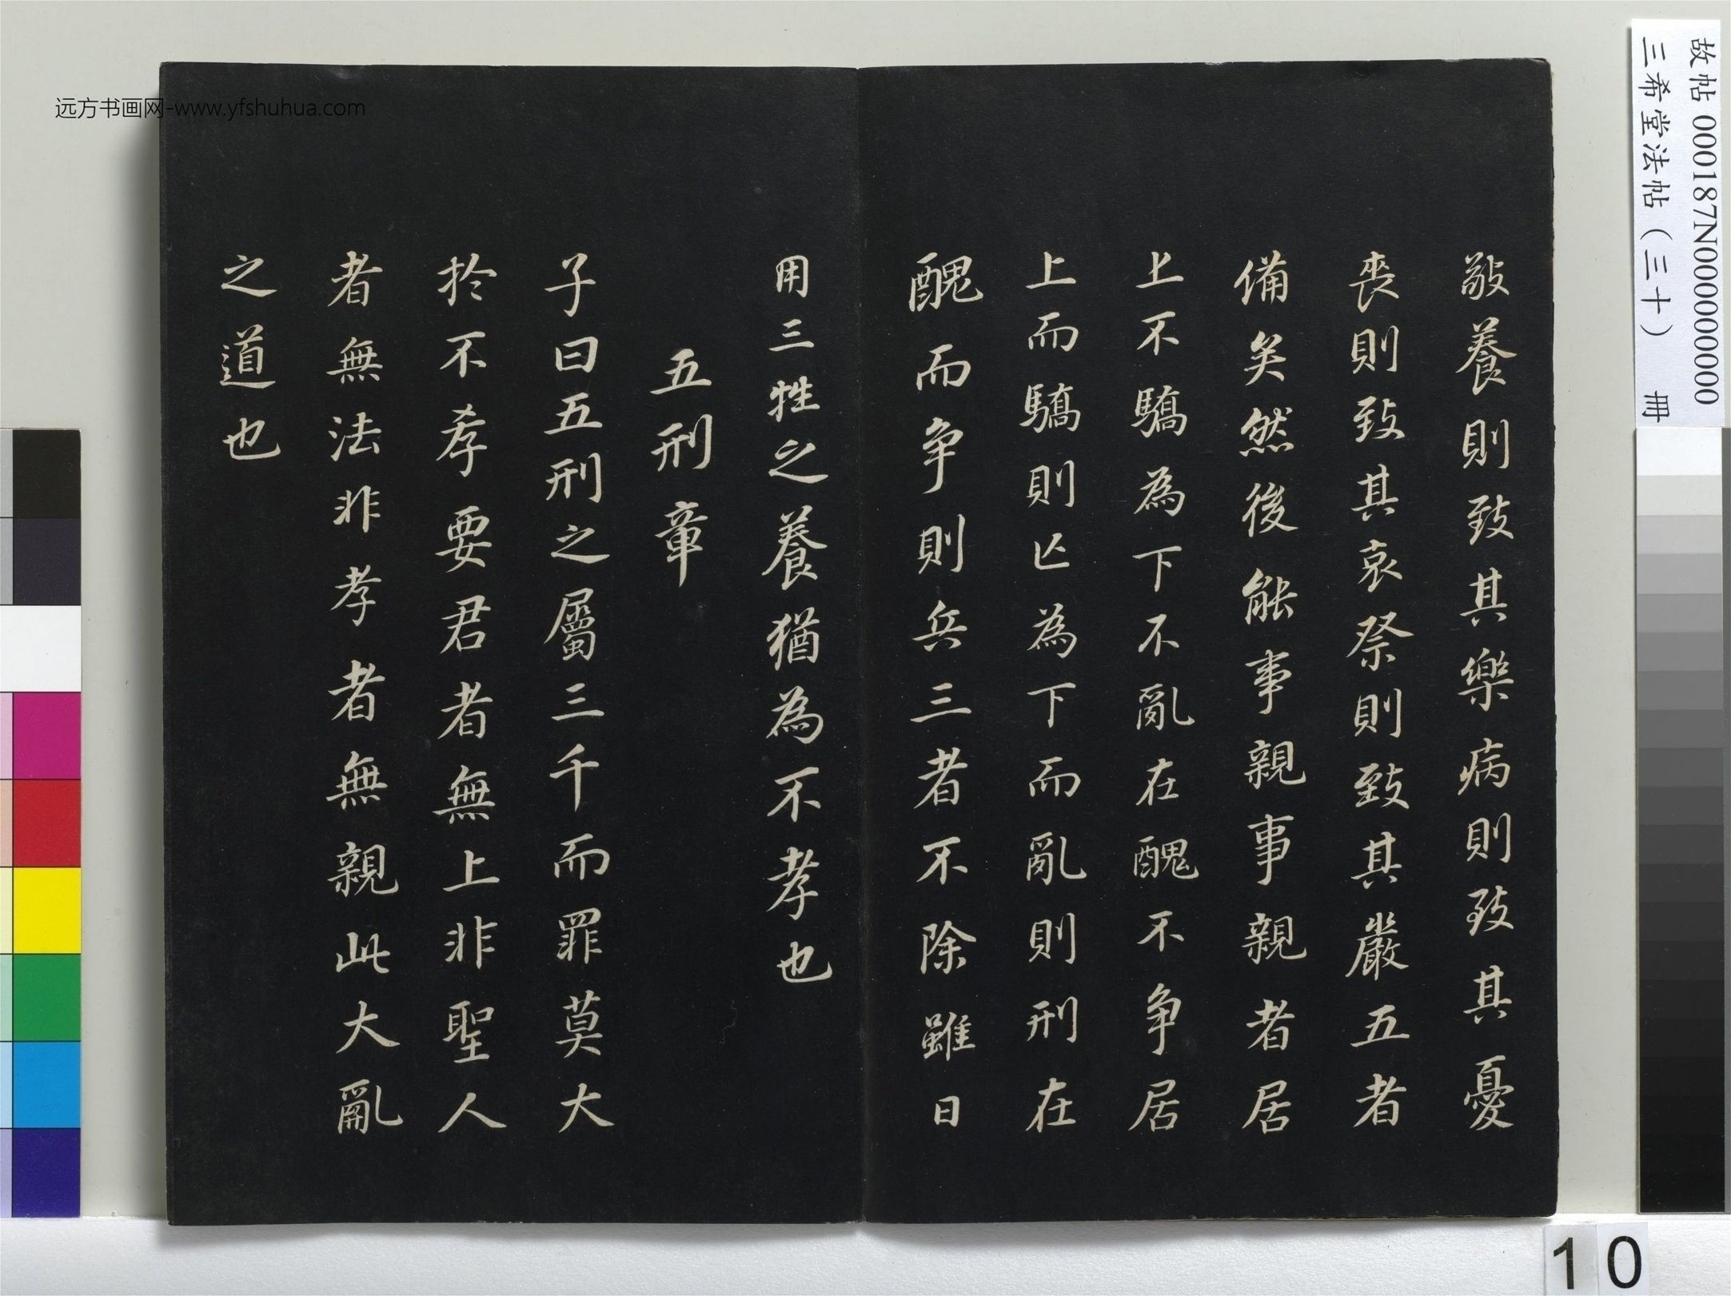 敬養則致其樂病則致其憂
喪則致其哀祭則致其嚴五者
備矣然後能事親事親者居
上不驕為下不亂在醜不争居
上而驕則亡為下而亂則刑在
醜而争則兵三者不除雖日
用三牲之養猶為不孝也
五刑章
子曰五刑之屬三千而罪莫大
於不孝要君者無上非聖人
者無法非孝者無親此大亂
之道也
故帖 000187N000000000
三希堂法帖（三十） 冊
远方书画网-www.yfshuhua.com
10